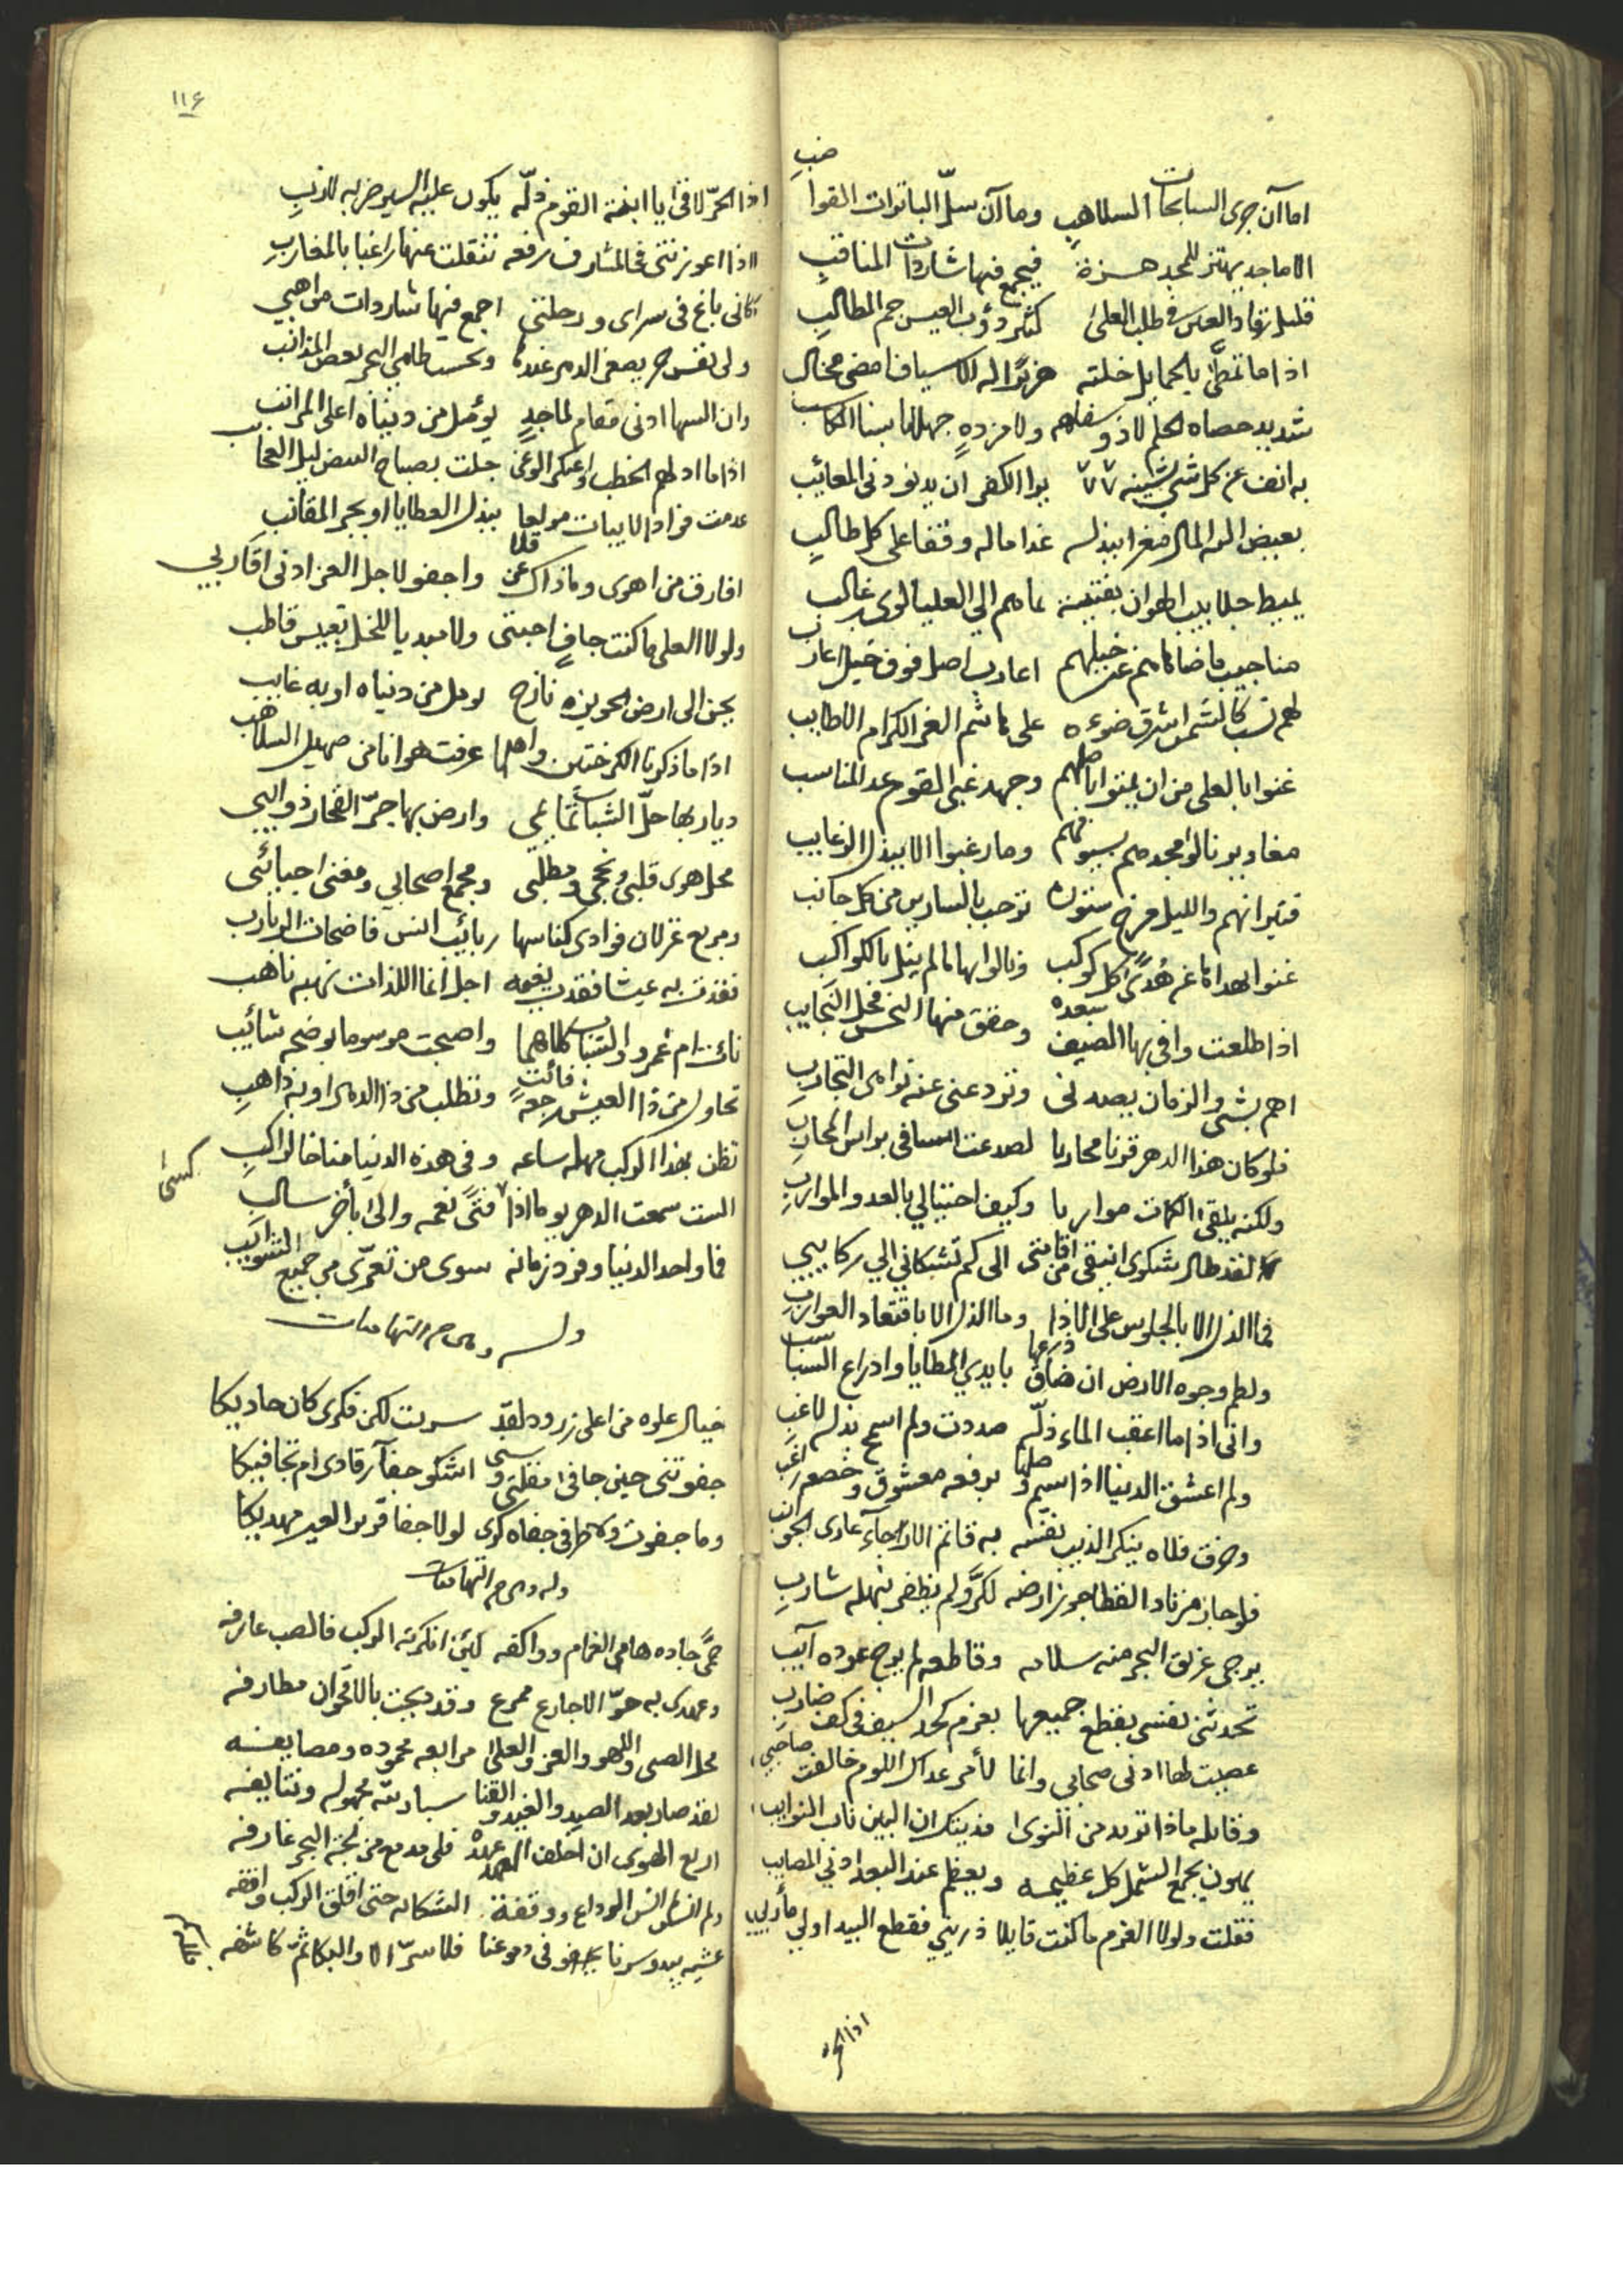 اما آن جرى السابحات السلاهبِ وما آن سلّ الباترات القواضبِ
الاماجد يهتز للمجد هزة فيجمع فيها شاردات المناقبِ
قليل رقاد العين في طلب العلىٰ كثير دؤب العيس جم المطالبِ
اذا ما تمطّى بالحمايل خلته هزبرًا له الاسياف امضى مخالب
شديد حصاه الحلم لا ذو سفاهم ولا مزدهٍ جهلا بسنا المكاسب
به انف عن كل شئ يشينه يوا الكفر ان يدنو دنى المعائب
ببعض المال مغرا ببذله غدا ماله وقفا على كل طالبٍ
يميط جلابيب الهوان بفتيـة الى العليا لوى بن غالب
مناجيب اعاريب اصل فوق خيل اعارب
لهم نسب كالشمس اشرق ضوءه على هاشم الغر الكرام الاطايب
غنوا بالعلى من ان وجهد غبى القوم عد المناسب
مغاوير نالوا مجدهم بسيوفهم وما رغبوا الا ببذل الرغايب
نيرانهم والليل مرخ ستوره ترحب بالسارين من كل جانب
هُدًى كل كوكب ونالوا بها ما لم ينل بالكواكب
اذا طلعت وافى بها الضيف سعده وحقق منها النحس فحل النجايب
اهم بشىٔ والزمان يصدنى وتردعنى عنه نواهى التجاربِ
فلو كان هذا الدهر قرنا محاربا لصدعت اسيافى براس المحاربِ
ولكنه يلقى الكمات مواربا وكيف احتيالي بالعدو المواربِ
لقد طال شكوى اينقى من اقامتى الى كم تشكانى الي ركايبي
فما الذل الا بالجلوس على الاذا وما الذل الا باقتعاد الغواربِ
ولطم وجوه الارض ان ضاق ذرعها بايدي المطايا وادراع السباسب
وانى اذا ما اعقب الماء ذلّه صددت ولم اسمح بذل لاغبِ
ولم اعشق الدنيا اذا سيم وصلها برفعه معشوق وخضعه راغب
وخرق فلاه ينكر الذيب نفسه به قاتم الارجآء عارى الجوانب
فلو جاز مرتاد القطا جوز ارضه لكرّ ولم يظفر بنهله شاربِ
يرجى غريق البحر منه سلامه وقاطعه لم يرج عوده آيب
تحدثنى نفسى بقطع جميعها بعزم كحد السيف فى كف ضاربِ
عصيت لها ادنى صحابى وانما لأمر عداك اللوم خالفت صاحبي
وقايله ماذا تريد من النوى فديتك ان البين ناب النوايب
يهون بجمع الشمل كل عظيمه ويعظم عند البعد ادنى المصايب
فقلت ولولا العزم ما كنت قايلا ذرينى فقطع البيد اولي مأربي
اذا الحر
١١٦
اذا الحرّ لاقى يا ابنة القوم ذلّه يكون عليه السير ضربه لازبِ
اذا اعوزتنى في المشارق رفعه تنقلت عنها راغبا بالمغاربِ
كانى باغ فى سراى ورحلتى اجمع فيها شاردات مواهبي
ولى نفس حر يصغر الدهر عندها وتحسب طامى البحر بعض المذانب
وان السها ادنى مقام لماجدٍ يؤمل من دنياه اعلى المراتب
اذا ما ادلهم الخطب واعتكر الوغى جلت بصباح البيض ليل العجايب
عدمت فؤاد الا يبات مولعا ببذل العطايا او بجر المقانب
افارق من اهوى وما ذاك عن قلا واجفو لاجل العز ادنى اقاربي
ولولا العلى ما كنت جافٍ احبتى ولا مبديا للخل تعبيس قاطب
يحن الى ارض الحويزه نازح يومل من دنياه اوبه غايب
اذا ما ذكرنا الكرختين واهلها عرفت هوانا من صهيل السلاهب
ديار بها حلّ الشباب تمائمي وارض بها جرّ الفخار ذوائبي
محل هوى قلبى ونجحى ومطلبى ومجمع اصحابي ومغنى احبائى
ومربع غزلان فوادى كناسها ربائب انس فاضحات الربارب
فقدت به عيشا فقدت نعيمه اجل انما اللذات نهبه ناهب
نائت ام عمرو والشباب كلاهما واصبحت موسوما بوضحه شائب
تحاول من ذا العيش رجعه فائتٍ وتطلب من ذا الدهر اوبه ذاهبِ
تظن بهذا الركب مهله ساعه وفى هذه الدنيا مناخا لراكبِ
الست سمعت الدهر يوما اذا كسٰى فتًى نعمه والى بأخذ سالب
فما واحد الدنيا وفرد زمانه سوى من تعرّى من جميع الشوايب
وله وهى من التهاميات
خيال علوه من اعلى زرود لقد سريت لكن فكرى كان حاديكا
جفوتنى حين جافى مقلتى وسنى اشكو جفآ رقادى ام تجافيكا
وما جفوت ولا طرفى جفاه كرى لولا جفا قرير العين مهديكا
وله وهى من التهاميات
حمًى جاده هامى الغمام وواكفه لئن انكرته الركب فالصب عارفه
وعهدى به حوّ الاجارع ممرع وقد دبجت بالاقحوان مطارفه
محل الصبى واللهو والعز والعلى مرابعه محموده ومصايفه
لقد صار بعد الصيد والغيد والقنا سباريته مجهوله وتنايفه
اربع الهوى ان اخلف العهد عهدهْ فلى مدمع من لجة البحر غارفه
ولم انس لا انس الوداع ووقفة الشكاله حتى اقلق الركب واقفه
عشيه يبدو سرنا دموعنا فلا سرّ الا والبكا ثمّ كاشفه